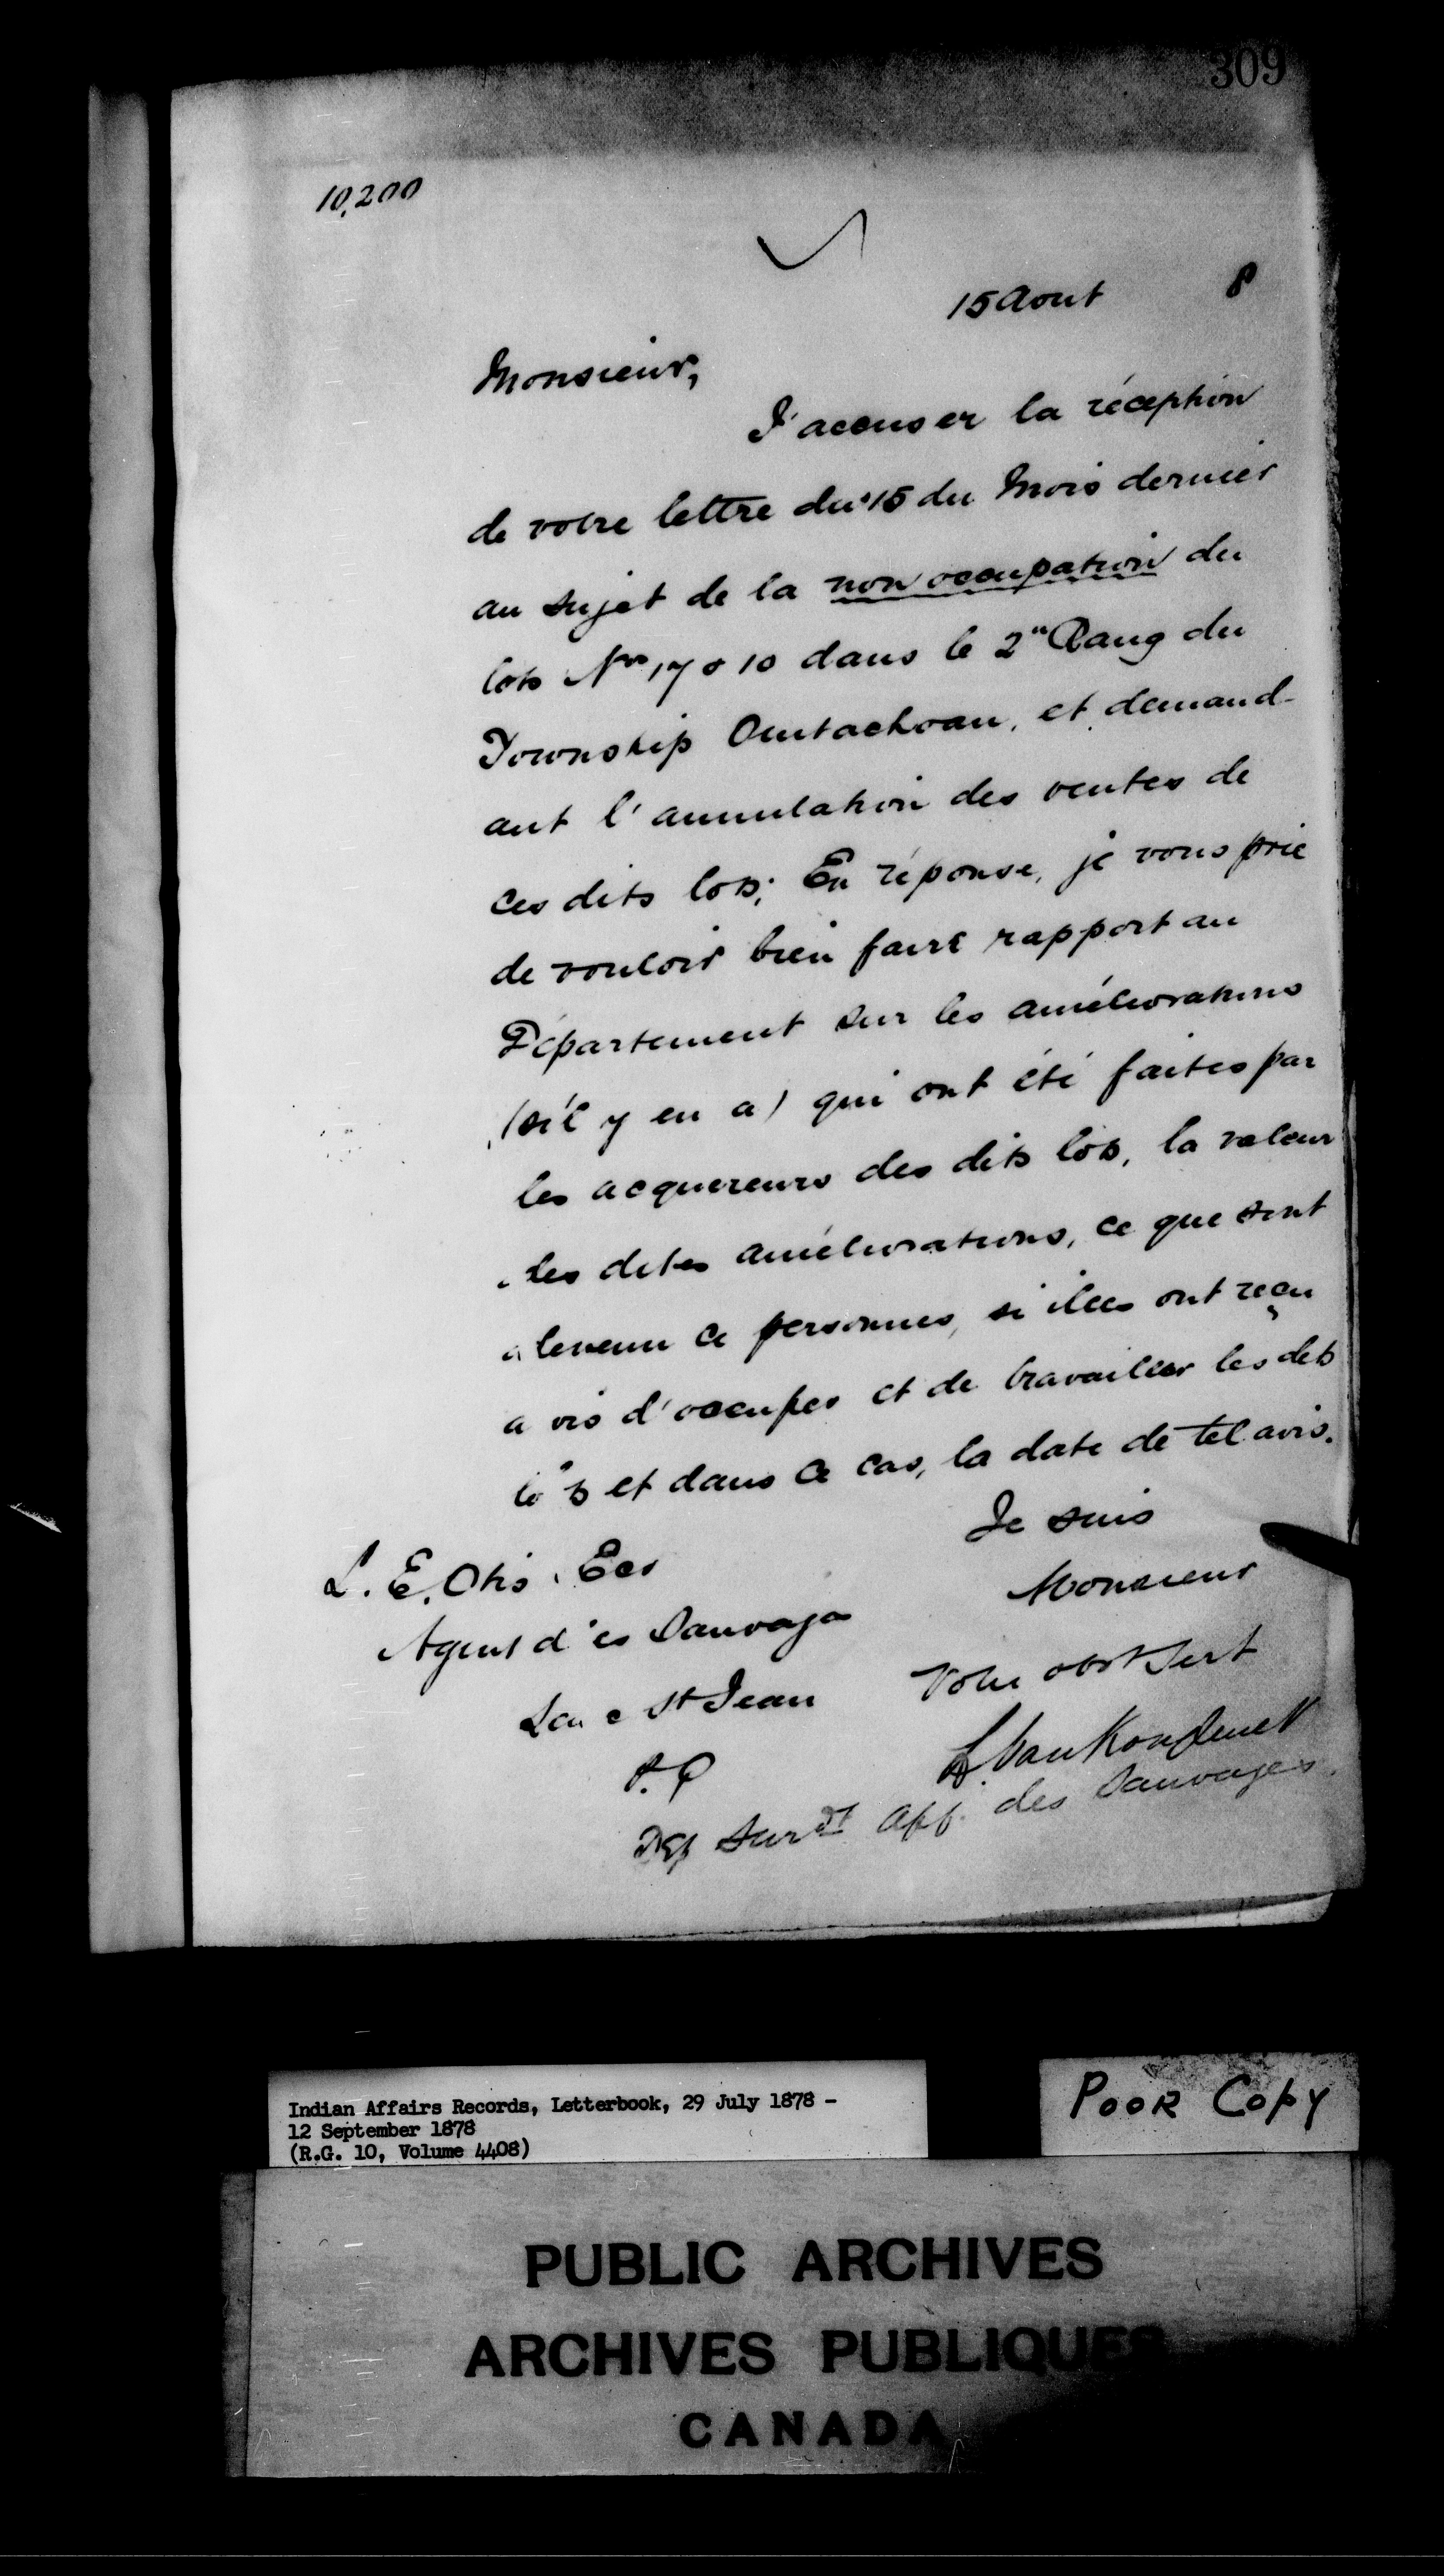 309
10,200
15 Aout 8
Monsieur,
J'accuser la réception
de votre lettre du 15 du Mois dernier
au sujet de la non occupation du
lots Nos 17 & 10 dans le 2" Rang du
Township Ouiatachoan, et demand-
ant l'annulation des ventes de
ces dits lots; En réponse, je vous prie
de vouloir bien faire rapport au
Département sur les améliorations
(s'il y en a) qui ont été faites par
les acquereurs des dits lots, la valeur
des dites améliorations, ce que sont
devenu ce personnes, si elles ont reçu
avis d'occuper et de travailler les dits
lots et dans ce cas, la date de tel avis.
Je suis
Monsieur
L. E. Otis. Ecr
Agent des Sauvages
Votre obt Sert
Lac St Jean
L. VanKoughnet
P. Q
Dep Surdt Aff. des Sauvages.
Indian Affairs Records, Letterbook, 29 July 1878 -
12 September 1878
(R.G. 10, Volume 4408)
POOR COPY
PUBLIC ARCHIVES
ARCHIVES PUBLIQUES
CANADA